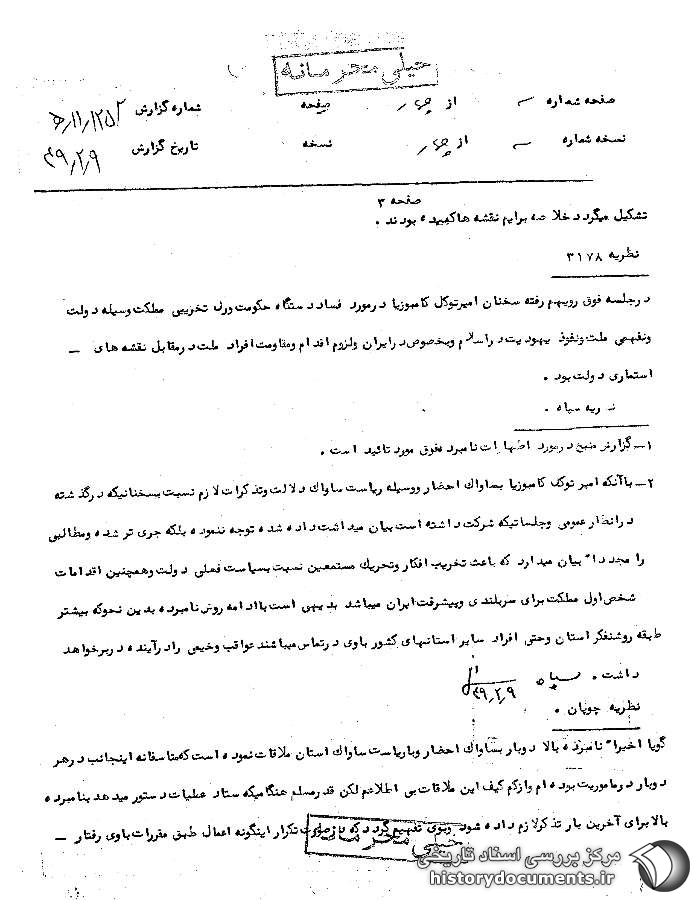 خیلی محرمانه
صفحه شماره از چهار صفحه شماره گزارش ۵/۱۱/۱۲۵۲
نسخه شماره از چهار نسخه تاریخ گزارش ۴۹/۲/۹
صفحه ۳
تشکیل میگردد خلاصه برایم نقشه ها کشیده بودند .
نظریه ۳۱۷۸
درجلسه فوق رویهم رفته سخنان امیرتوکل کامبوزیا درمورد فساد دستگاه حکومت ورل تخریبی مملکت وسیله دولت
ونفهمی ملت ونفوذ یهودیت دراسلام وبخصوص درایران ولزوم اقدام ومقاومت افراد ملت درمقابل نقشه های ـ
استعماری دولت بود .
نظریه سپاه .
۱ـ گزارش منبع درمورد اظهارات نامبرده فوق مورد تائید است .
۲ـ باآنکه امیر توکل کامبوزیا بساواک احضار ووسیله ریاست ساواک دلالت وتذکرات لازم نسبت بسخنانیکه درگذشته
درانظار عمومی وجلساتیکه شرکت داشته است بیان میداشت داده شده توجه ننموده بلکه جری تر شده ومطالبی
را مجدداً بیان میدارد که باعث تخریب افکار وتحریک مستمعین نسبت بسیاست فعلی دولت وهمچنین اقدامات
شخص اول مملکت برای سربلندی وپیشرفت ایران میباشد بدیهی است باادامه روش نامبرده بدین نحوکه بیشتر
طبقه روشنفکر استان وحتی افراد سایر استانهای کشور باوی درتماس میباشند عواقب وخیمی رادرآینده دربرخواهد
داشت . سپاه ۴۹/۲/۹
نظریه چوپان .
گویا اخیراً نامبرده بالا دوبار بساواک احضار وباریاست ساواک استان ملاقات نموده است که متاسفانه اینجانب درهر
دوبار درماموریت بوده ام وازکم کیف این ملاقات بی اطلاعم لکن قدرمسلم هنگامیکه ستاد عملیات دستور میدهد بنامبرده
بالا برای آخرین بار تذکرلازم داده شود وبوی تفهیم گردد که درصورت تکرار اینگونه اعمال طبق مقررات باوی رفتار ـ
خیلی محرمانه
مرکز بررسی اسناد تاریخی
historydocuments.ir